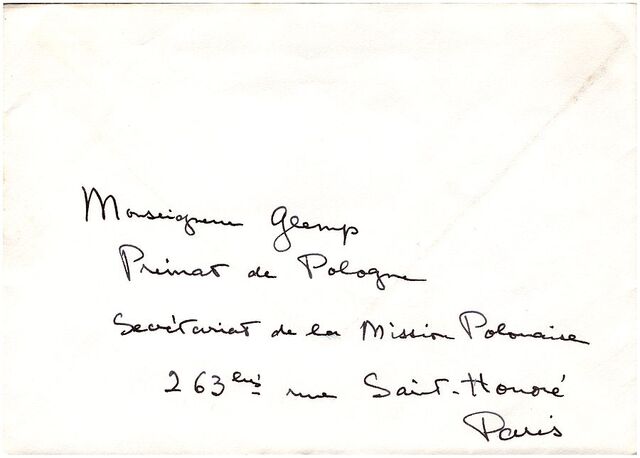 Monseigneur Glemp
Primat de Pologne
Secrétariat de la Mission Polonaise
263 bis rue Saint-Honoré
Paris